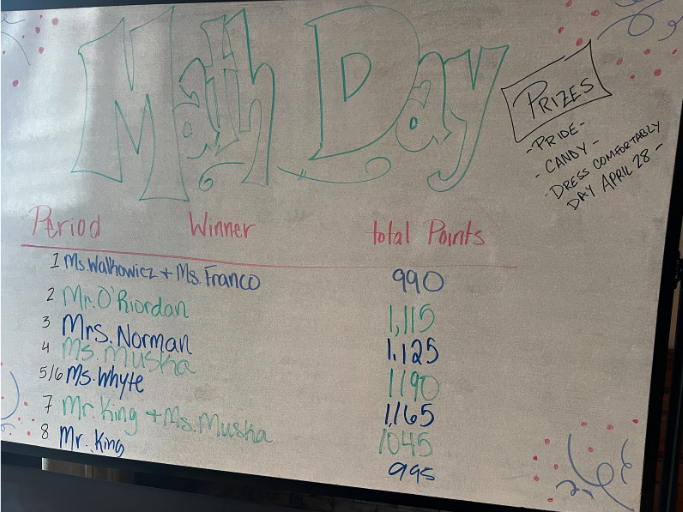 Math Day
PRIZES
- PRIDE -
- CANDY -
- DRESS COMFORTABLY
DAY APRIL 28 -
Period Winner total Points
1 Ms. Walkowicz + Ms. Franco 990
2 Mr. O'Riordan 1,115
3 Mrs. Norman 1,125
4 Ms. Musha 1190
5/6 Ms. Whyte 1,165
7 Mr. King + Ms. Musha 1045
8 Mr. King 995